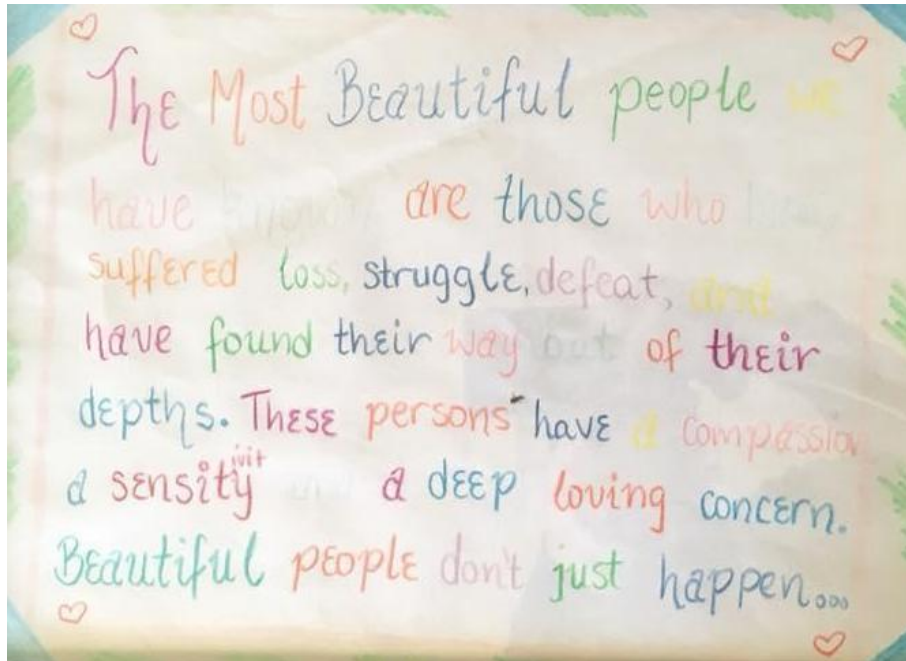 The Most Beautiful people we
have known are those who have
suffered loss, struggle, defeat, and
have found their way out of their
depths. These persons have a compassion
a sensitivity and a deep loving concern.
Beautiful people don't just happen...